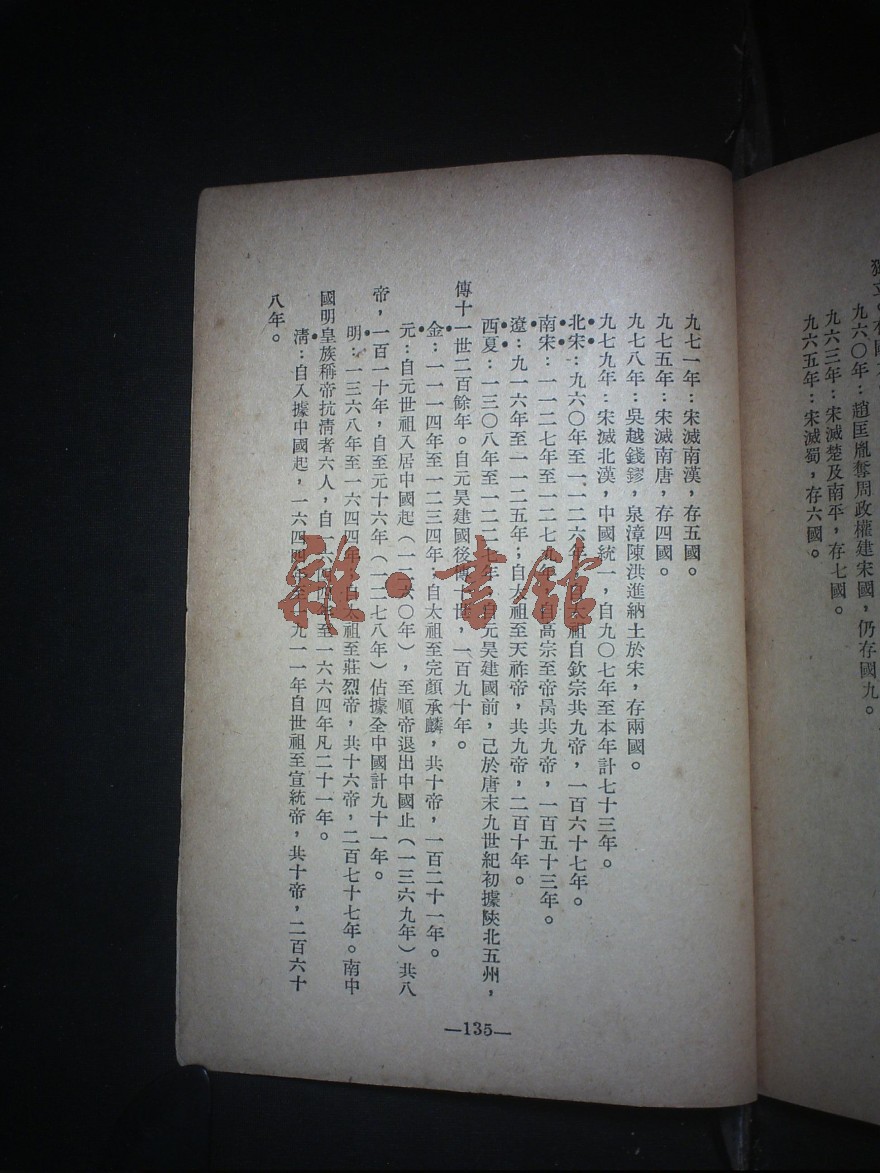 九六〇年：趙匡胤奪周政權建宋國，仍存國九。
九六三年：宋滅楚及南平，存七國。
九六五年：宋滅蜀，存六國。
九七一年：宋滅南漢，存五國。
九七五年：宋滅南唐，存四國。
九七八年：吳越錢鏐，泉漳陳洪進納土於宋，存兩國。
九七九年：宋滅北漢，中國統一，自九〇七年至本年計七十三年。
北宋：九六〇年至一一二六年，自太祖自欽宗共九帝，一百六十七年。
南宋：一一二七年至一二七九年，自高宗至帝昺共九帝，一百五十三年。
遼：九一六年至一一二五年；自太祖至天祚帝，共九帝，二百十年。
西夏：一三〇八年至一二二七年，自元昊建國前，己於唐末九世紀初據陝北五州，
傳十一世二百餘年。自元昊建國後傳十世，一百九十年。
金：一一一四年至一二三四年；自太祖至完顏承麟，共十帝，一百二十一年。
元：自元世祖入居中國起（一二六〇年），至順帝退出中國止（一三六九年）共八
帝，一百一十年，自至元十六年（一二七八年）佔據全中國計九十一年。
明：一三六八年至一六四四年，自太祖至莊烈帝，共十六帝，二百七十七年。南中
國明皇族稱帝抗清者六人，自一六四年至一六六四年凡二十一年。
清：自入據中國起，一六四四年至一九一一年自世祖至宣統帝，共十帝，二百六十
八年。
—135—
雜·書館